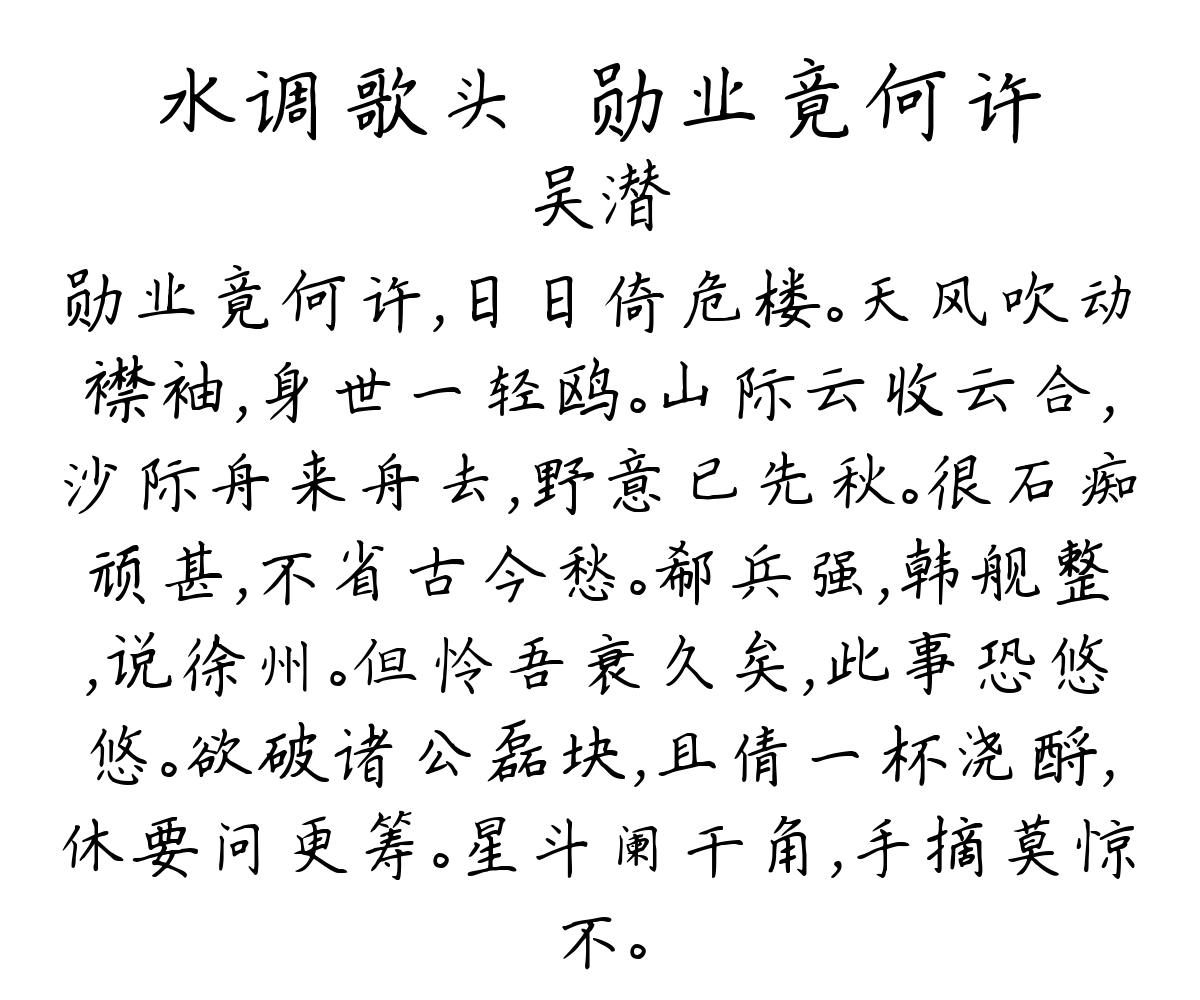 水调歌头 勋业竟何许
吴潜
勋业竟何许,日日倚危楼。天风吹动
襟袖,身世一轻鸥。山际云收云合,
沙际舟来舟去,野意已先秋。很石痴
顽甚,不省古今愁。郗兵强,韩舰整
,说徐州。但怜吾衰久矣,此事恐悠
悠。欲破诸公磊块,且倩一杯浇酹,
休要问更筹。星斗阑干角,手摘莫惊
不。